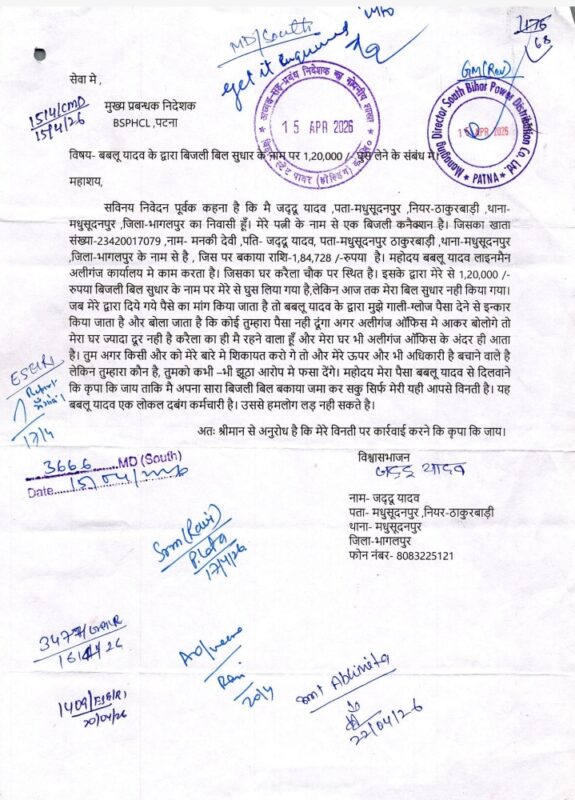 1176
68
MD/South
get it enquired
GM(Rev)
15/4/CMD
15/4/26
सेवा मे ,
मुख्य प्रबन्धक निदेशक
BSPHCL ,पटना
अध्यक्ष-सह-प्रबंध निदेशक का गोपनीय शाखा
15 APR 2026
बिहार स्टेट पावर (होल्डिंग) कं० लि०
Managing Director, South Bihar Power Distribution Co. Ltd.
15 APR 2026
* PATNA *
विषय- बबलू यादव के द्वारा बिजली बिल सुधार के नाम पर 1,20,000 /- घुस लेने के संबंध मे।
महाशय,
सविनय निवेदन पूर्वक कहना है कि मै जद्दू यादव ,पता-मधुसूदनपुर ,नियर-ठाकुरबाड़ी ,थाना-
मधुसूदनपुर ,जिला-भागलपुर का निवासी हूँ। मेरे पत्नी के नाम से एक बिजली कनैक्शन है। जिसका खाता
संख्या-23420017079 ,नाम- मनकी देवी ,पति- जद्दू यादव, पता-मधुसूदनपुर ठाकुरबाड़ी ,थाना-मधुसूदनपुर
,जिला-भागलपुर के नाम से है , जिस पर बकाया राशि-1,84,728 /-रुपया है। महोदय बबलू यादव लाइनमैन
अलीगंज कार्यालय मे काम करता है। जिसका घर करैला चौक पर स्थित है। इसके द्वारा मेरे से 1,20,000 /-
रुपया बिजली बिल सुधार के नाम पर मेरे से घुस लिया गया है,लेकिन आज तक मेरा बिल सुधार नही किया गया।
जब मेरे द्वारा दिये गये पैसे का मांग किया जाता है तो बबलू यादव के द्वारा मुझे गाली-ग्लोज पैसा देने से इन्कार
किया जाता है और बोला जाता है कि कोई तुम्हारा पैसा नही दूंगा अगर अलीगंज ऑफिस मे आकर बोलोगे तो
मेरा घर ज्यादा दूर नही है करैला का ही मै रहने वाला हूँ और मेरा घर भी अलीगंज ऑफिस के अंदर ही आता
है। तुम अगर किसी और को मेरे बारे मे शिकायत करो गे तो और मेरे ऊपर और भी अधिकारी है बचाने वाले है
लेकिन तुम्हारा कौन है, तुमको कभी –भी झूठा आरोप मे फसा देंगे। महोदय मेरा पैसा बबलू यादव से दिलवाने
कि कृपा कि जाय ताकि मै अपना सारा बिजली बिल बकाया जमा कर सकु सिर्फ मेरी यही आपसे विनती है। यह
बबलू यादव एक लोकल दबंग कर्मचारी है। उससे हमलोग लड़ नही सकते है।
अतः श्रीमान से अनुरोध है कि मेरे विनती पर कार्रवाई करने कि कृपा कि जाय।
17/4
3666 MD (South)
Date 15/04/
विश्वासभाजन
जद्दू यादव
नाम- जद्दू यादव
पता- मधुसूदनपुर ,नियर-ठाकुरबाड़ी
थाना- मधुसूदनपुर
जिला-भागलपुर
फोन नंबर- 8083225121
17/4/26
16/4/26
20/4
20/04/26
22/04/26